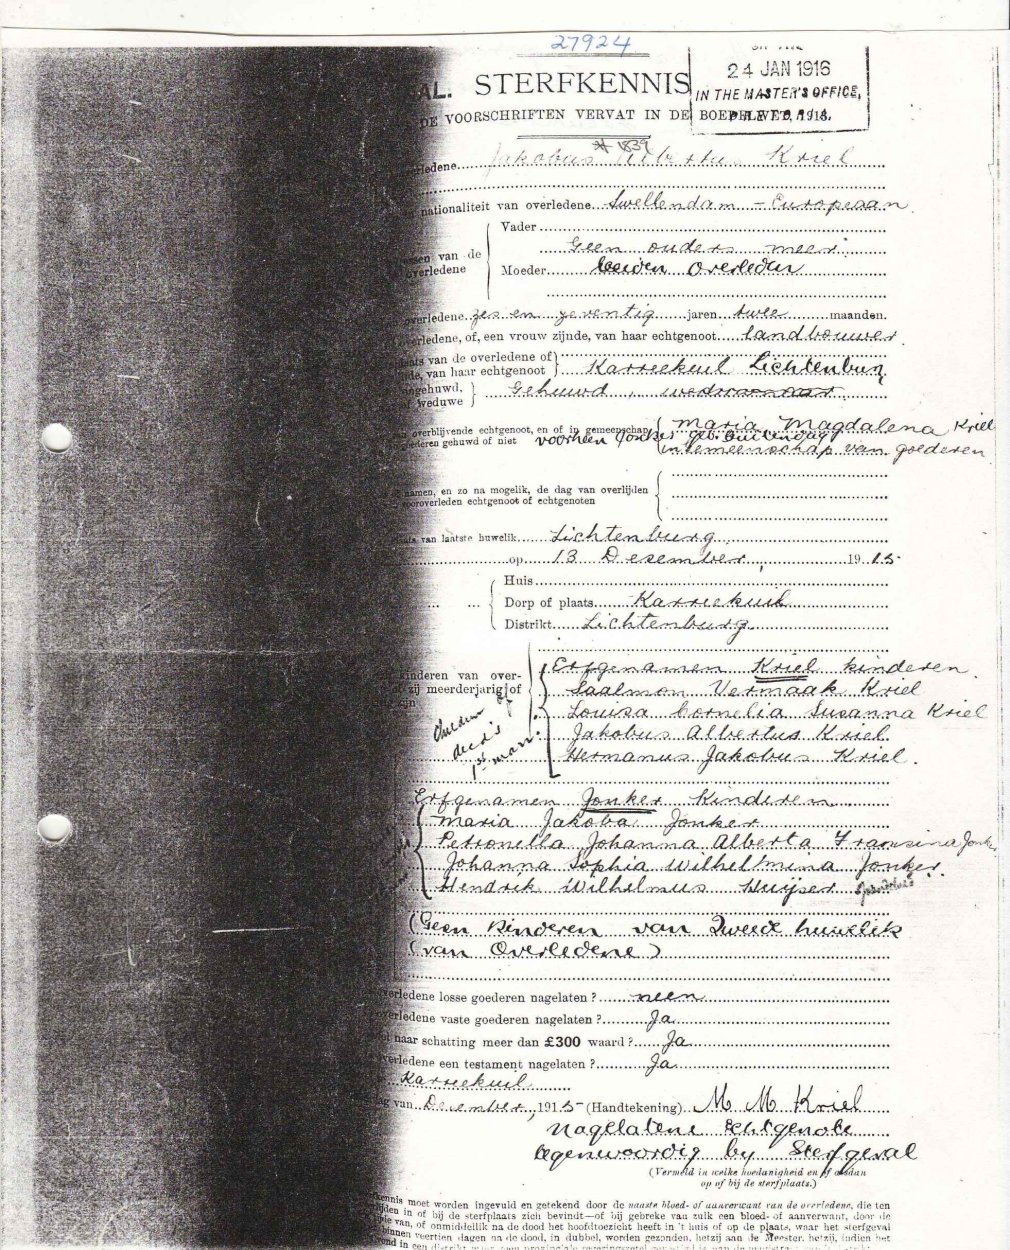 27924
24 JAN 1916
IN THE MASTER'S OFFICE,
AL. STERFKENNIS
DE VOORSCHRIFTEN VERVAT IN DE BOEDELWET, 1913.
* 1839
ledene Jakobus Albertus Kriel
nationaliteit van overledene Swellendam – Europeaan
Vader
Geen ouders meer
van de
overledene
Moeder beiden overleden
overledene zes en zeventig jaren twee maanden.
overledene, of, een vrouw zijnde, van haar echtgenoot landbouwer
van de overledene of
van haar echtgenoot } Karreekuil Lichtenburg
ngehuwd,
weduwe } Gehuwd wedewenaar
overblijvende echtgenoot, en of in gemeenschap
goederen gehuwd of niet
Maria Magdalena Kriel
voorheen Jonker geb. Buitendag
in Gemeenschap van goederen
namen, en zo na mogelik, de dag van overlijden
vooroverleden echtgenoot of echtgenoten
van laatste huwelik Lichtenburg
op 13 Desember, 1915
Huis
Dorp of plaats Karreekuil
Distrikt Lichtenburg
kinderen van over-
zij meerderjarig of
zijn
Erfgenamen Kriel kinderen
Saalmon Vermaak Kriel
Louisa Cornelia Susanna Kriel
Jakobus Albertus Kriel
Hermanus Jakobus Kriel.
Children of
dec'd's
1st man:
Erfgenamen Jonker Kinderen
Maria Jakoba Jonker
Petronella Johanna Alberta Fransina Jonk
Johanna Sophia Wilhelmina Jonker
Hendrik Wilhelmus Huijser
(Geen Kinderen van Tweede huwelik
(van Overledene)
overledene losse goederen nagelaten? neen
overledene vaste goederen nagelaten? Ja
naar schatting meer dan £300 waard? Ja
overledene een testament nagelaten? Ja
Karreekuil
dag van Desember, 1915 (Handtekening) M M Kriel
Nagelatene Echtgenote
tegenwoordig by Sterfgeval
(Vermeld in welke hoedanigheid en of aldaan
op of bij de sterfplaats.)
kennis moet worden ingevuld en getekend door de naaste bloed- of aanverwant van de overledene, die ten
tijden in of bij de sterfplaats zich bevindt—of bij gebreke van zulk een bloed- of aanverwant, door de
van, of onmiddellik na de dood het hoofdtoezicht heeft in 't huis of op de plaats, waar het sterfgeval
binnen veertien dagen na de dood, in dubbel, worden gezonden, hetzij aan de Meester, hetzij, indien het